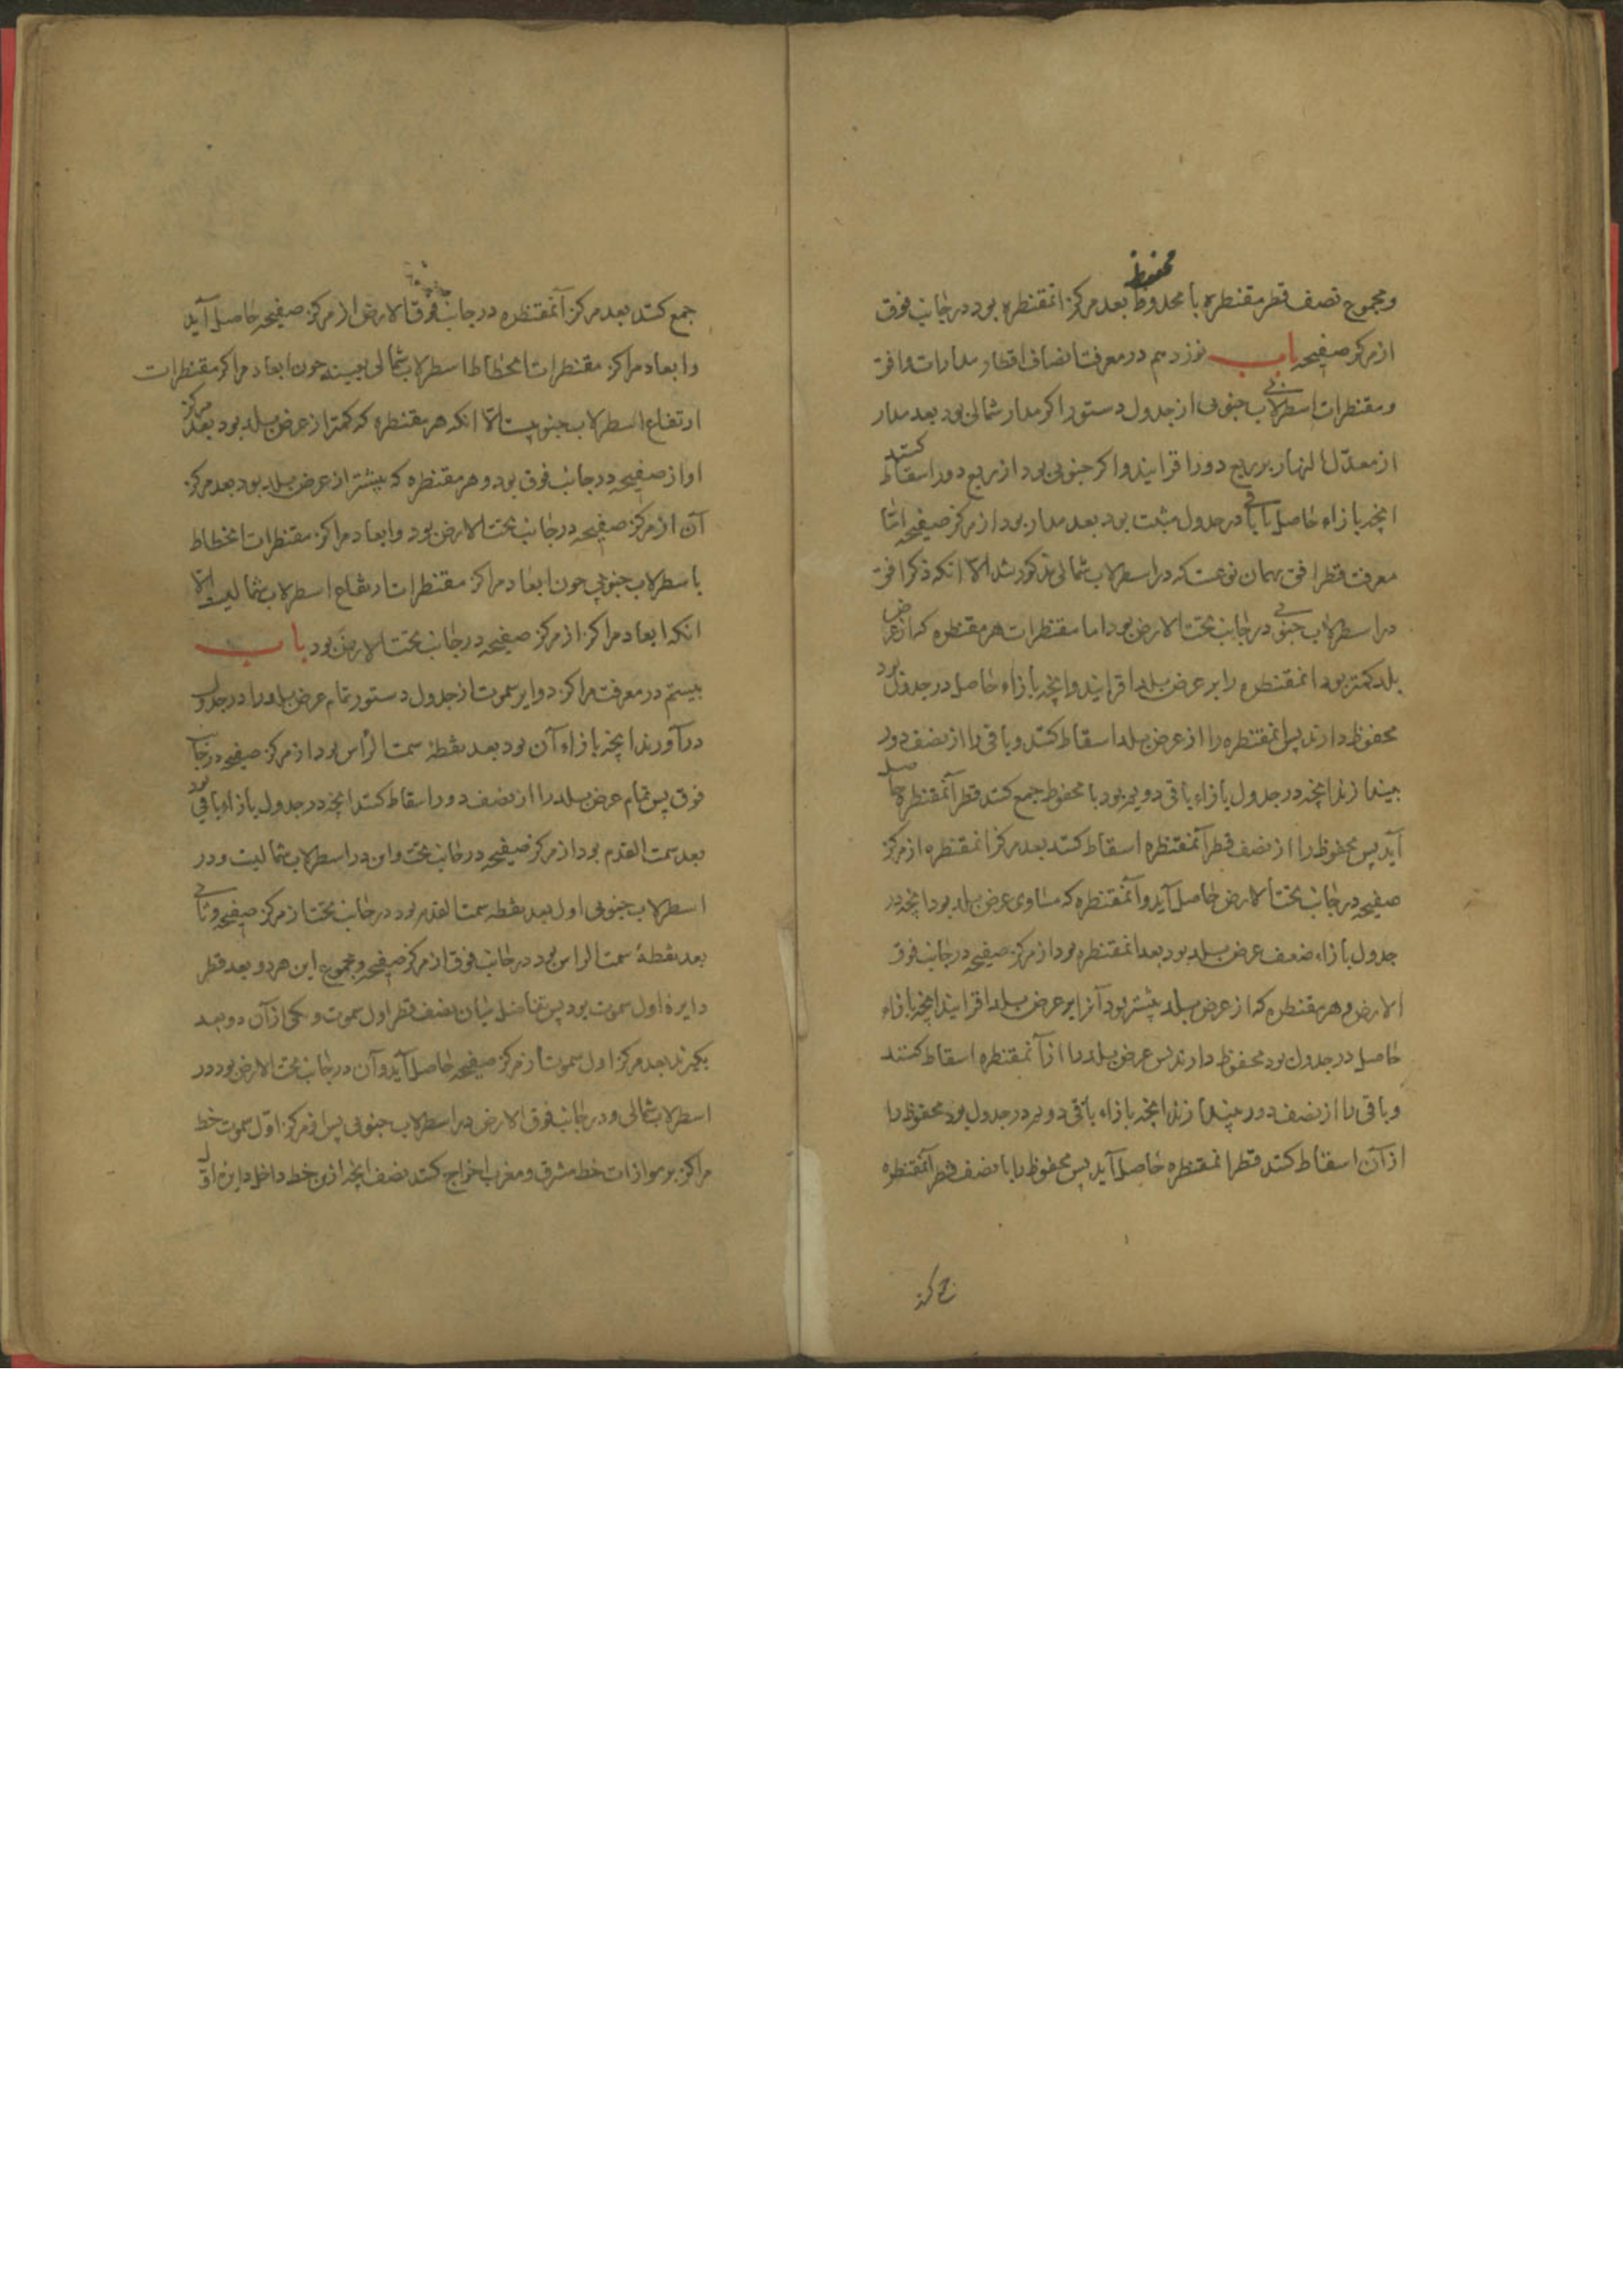 محفوظ
ومجموع نصف قطر مقنطره با محدوظ بعد مرکز انمقنطره بود در جانب فوق
از مرکز صفیحه باب نوزدهم در معرفت انصاف اقطار مدارات وافق
ومقنطرات اسطرلاب جنوبی از جدول دستور اکر مدار شمالی بود بعد مدار
از معدّل النهار بر ربع دور افزایند واکر جنوبی بود از ربع دور اسقاط کنند
انچه بازاء حاصل یا باقی در جدول مثبت بود بعد مدار بود از مرکز صفیحه امّا
معرفت قطر افق بهمان نوعست که در اسطرلاب شمالی مذکور شد الّا انکه ذکر افق
در اسطرلاب جنوبی در جانب تحت الارض بود اما مقنطرات هر مقنطره که از عرض
بلد کمتر بود انمقنطره را بر عرض بلد افزایند وانچه بازاء حاصل در جدول بود
محفوظ دارند پس انمقنطره را از عرض بلد اسقاط کنند وباقی را از نصف دور
بیندازند انچه در جدول بازاء باقی دویم بود با محفوظ جمع کنند قطر آنمقنطره حاصل
آید پس محفوظ را از نصف قطر آنمقنطره اسقاط کنند بعد مرکز انمقنطره از مرکز
صفیحه در جانب تحت الارض حاصل آید وآنمقنطره که مساوی عرض بلد بود انچه در
جدول بازاء ضعف عرض بلد بود بعد انمقنطره بود از مرکز صفیحه در جانب فوق
الارض وهر مقنطره که از عرض بلد بیشتر بود آنرا بر عرض بلد افزایند انچه بازاء
حاصل در جدول بود محفوظ دارند پس عرض بلد را از آنمقنطره اسقاط کنند
وباقی را از نصف دور بیندازند انچه بازاء باقی دویم در جدول بود محفوظ را
از آن اسقاط کنند قطر انمقنطره حاصل آید پس محفوظ را با نصف قطر آنمقنطره
جمع کنند
جمع کنند بعد مرکز آنمقنطره در جانب فوق الارض از مرکز صفیحه حاصل آید
وابعاد مراکز مقنطرات انحطاط اسطرلاب شمالی بعینه چون ابعاد مراکز مقنطرات
ارتفاع اسطرلاب جنوبیست الّا انکه هر مقنطره که کمتر از عرض بلد بود بعد مرکز
او از صفیحه در جانب فوق بود وهر مقنطره که بیشتر از عرض بلد بود بعد مرکز
آن از مرکز صفیحه در جانب تحت الارض بود وابعاد مراکز مقنطرات انحطاط
با سطرلاب جنوبی چون ابعاد مراکز مقنطرات ارتفاع اسطرلاب شمالیست الّا
انکه ابعاد مراکز از مرکز صفیحه در جانب تحت الارض بود باب
بیستم در معرفت مراکز دوایر سموت از جدول دستور تمام عرض بلد را در جدول
درآورند انچه بازاء آن بود بعد نقطهٔ سمت الرأس بود از مرکز صفیحه در جانب
فوق پس تمام عرض بلد را از نصف دور اسقاط کنند انچه در جدول بازاء باقی بود
بعد سمت القدم بود از مرکز صفیحه در جانب تحت واین در اسطرلاب شمالیست ودر
اسطرلاب جنوبی اول بعد نقطه سمت القدم بود در جانب تحت از مرکز صفیحه وثانی
بعد نقطهٔ سمت الراس بود در جانب فوق از مرکز صفیحه ومجموع این هر دو بعد قطر
دایرهٔ اول سموت بود پس تفاضل میان نصف قطر اول سموت ویکی از آن دو بعد
بکیرند بعد مرکز اول سموت از مرکز صفیحه حاصل آید وآن در جانب تحت الارض بود در
اسطرلاب شمالی ودر جانب فوق الارض در اسطرلاب جنوبی پس از مرکز اوّل سموت خط
مراکز بر موازات خط مشرق ومغرب اخراج کنند نصف انچه ازین خط داخل دایرهٔ اوّل